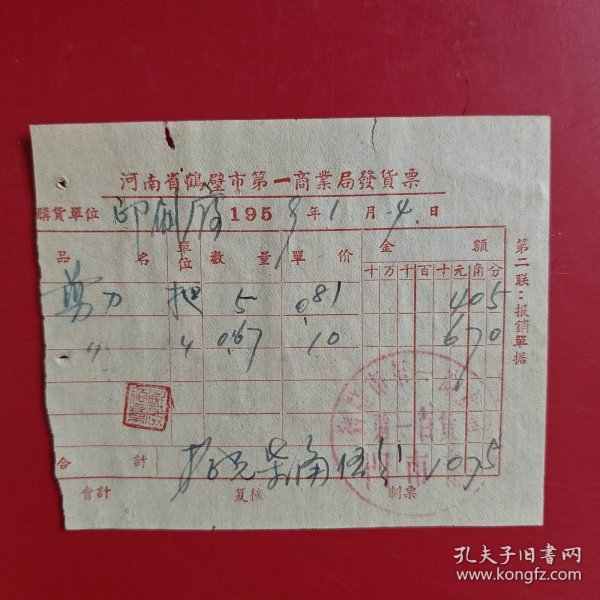 河南省鶴壁市第一商業局發貨票
購貨單位 印刷廠 1959年1月4日
品名 單位 數量 單价 金額
十万千百十元角分
剪刀 把 5 0.81 405
〃 〃 0.67 10 670
合計 拾元柒角伍分 1075
會計 复核 制票
第二联：报銷單据
第一百貨
孔夫子旧书网
www.kongfz.com